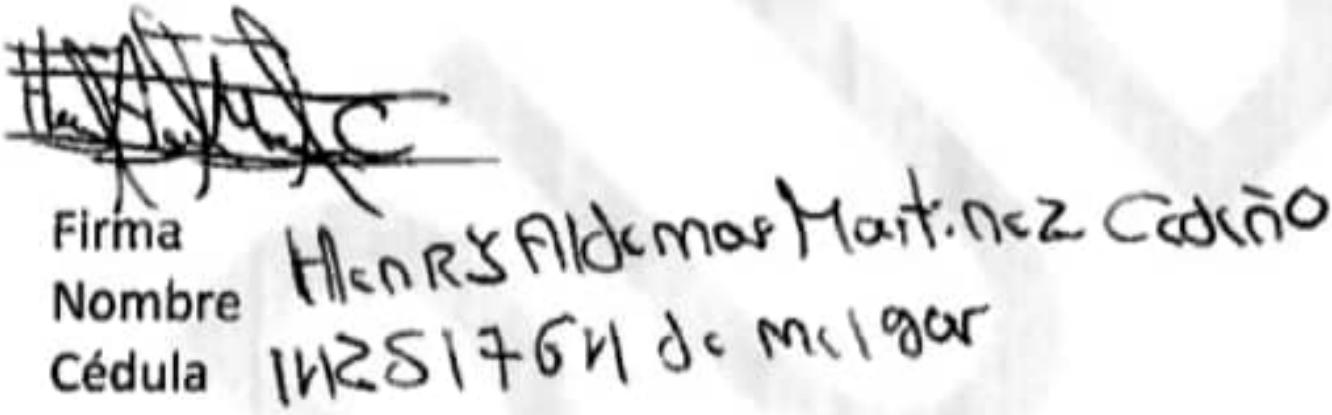 Firma
Nombre HenRY Aldemar Martinez Cedeño
Cédula 14251764 de Melgar